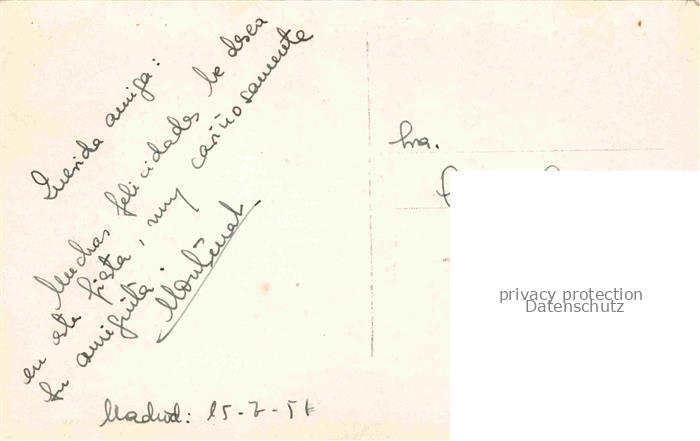 Querida amiga:
Muchas felicidades le desea
en esta fiesta, muy cariñosamente
Su amiguita.
Montserrat
Madrid: 15-7-51
Sra.
privacy protection
Datenschutz